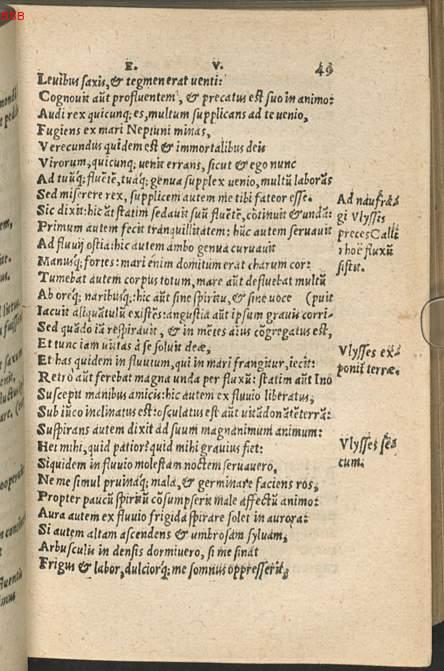 E. V. 49
Levibus saxis, & tegmen erat venti:
Cognovit aūt profluentem, & precatus est suo in animo:
Audi rex quicunq; es, multum supplicans ad te venio,
Fugiens ex mari Neptuni minas,
Verecundus quidem est & immortalibus deis
Virorum, quicunq; venit errans, sicut & ego nunc
Ad tuūq; fluētē, tuaq; genua supplex venio, multū laborās
Sed miserere rex, supplicem autem me tibi fateor esse.
Sic dixit: hic āt statim sedavit suū fluētē, cōtinuit & undā:
Primum autem fecit tranquillitatem: hūc autem servavit
Ad fluvij ostia: hic autem ambo genua curvavit
Manusq; fortes: mari enim domitum erat charum cor:
Tumebat autem corpus totum, mare aūt defluebat multū
Ab oreq; naribusq;: hic aūt sine spiritu, & sine voce (puit
Iacuit aliquātulū existēs: angustia aūt ipsum gravis corri-
Sed quādo iā respiravit, & in mētes aius cōgregatus est,
Et tunc iam vittas à se solvit deæ,
Et has quidem in fluvium, qui in mari frangitur, iecit:
Retrò aūt ferebat magna unda per fluxū: statim aūt Ino
Suscepit manibus amicis: hic autem ex fluvio liberatus,
Sub iūco inclinatus est: osculatus est aūt vitā donātē terrā:
Suspirans autem dixit ad suum magnanimum animum:
Hei mihi, quid patior? quid mihi gravius fiet:
Siquidem in fluvio molestam noctem servavero,
Ne me simul pruinaq; mala, & germinare faciens ros,
Propter paucū spiritū cōsumpserit male affectū animo:
Aura autem ex fluvio frigida spirare solet in aurora:
Si autem altam ascendens & umbrosam sylvam,
Arbusculis in densis dormivero, si me sinat
Frigus & labor, dulciorq; me somnus oppresserit,
Ad naufrā
gi Vlyssis
preces Calli
rhoë fluxū
sistit.
Vlysses ex-
ponit terræ.
Vlysses sē
cum.